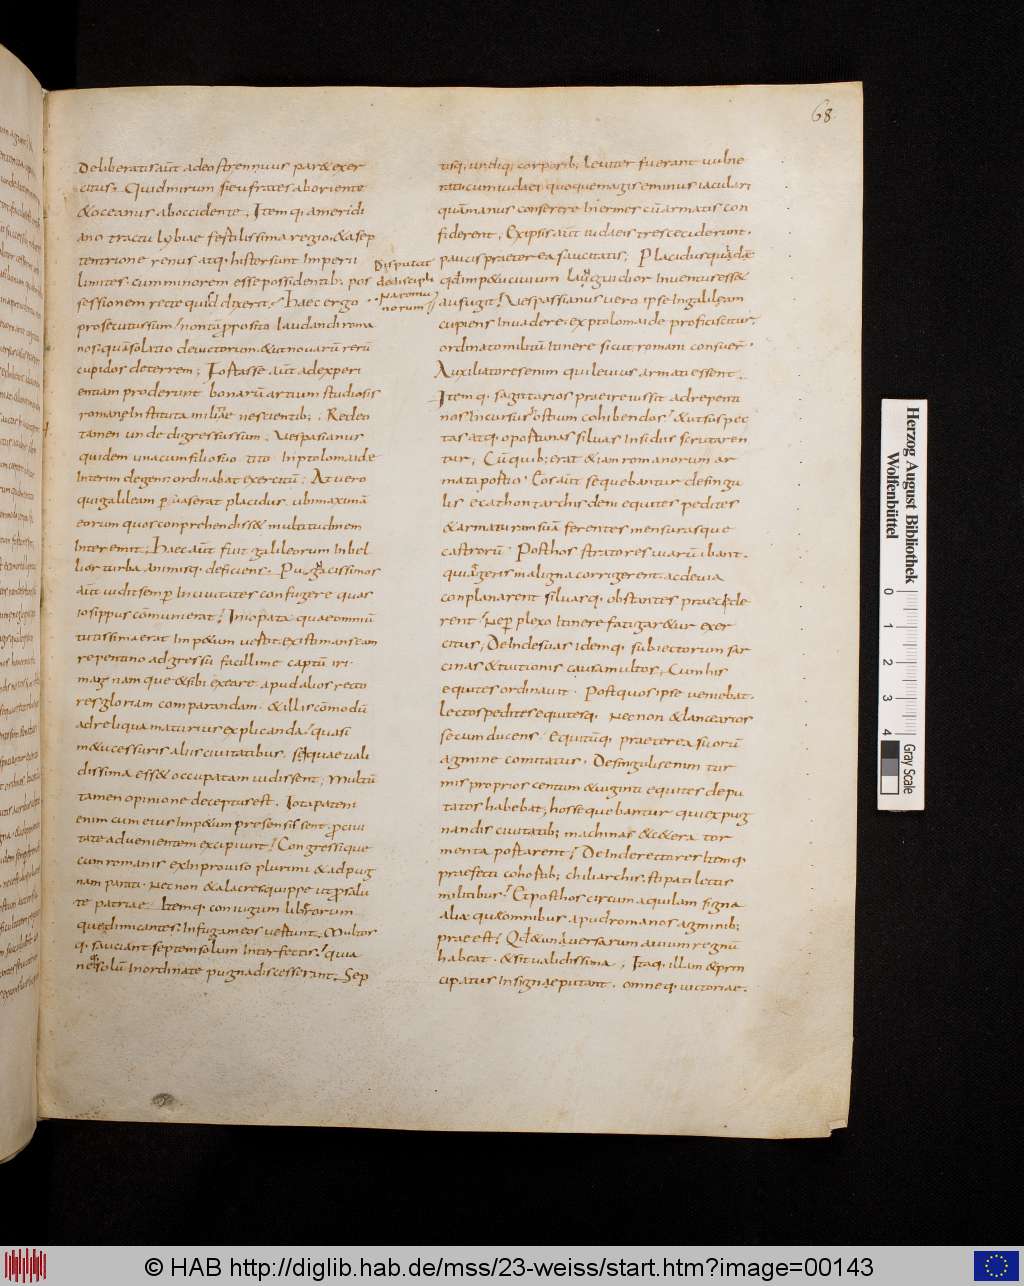 68
Deliberatis aūt adeo strennuus par& exer
citus. Quid mirum si eufrates ab oriente
& oceanus ab occidente. Item q; a meridi
ano tractu lybiae fertilissima regio. & a sep
tentrione renus atq; hister sunt Imperii
limites. cum minorem esse possidentib; pos
sessionem recte quid dixerit. Haec ergo
prosecutus sum non tā proposito laudandi roma
nos quā solatio deuictorum & ut nouarū rerū
cupidos deterrem; Fortasse aūt ad experi
entiam proderunt bonarū artium studiosis
romane Instituta militiae nescientib; . Redeo
tamen unde digressus sum. Uespasianus
quidem una cum filio suo tito In ptolomaide
Interim degens ordinabat exercitū. At uero
qui galileam peruaserat placidus ubi maximā
eorum quos conprehendiss& multitudinem
Interemit. Haec aūt fuit galileorum Inbel
lior turba animisq; deficiens. Pugnacissimos
aūt uidit semp In ciuitates confugere quas
iosippus cōmunierat. In iopata quae omniū
tutissima erat Imp&um uertit. existimans eam
repentino adgressu facillime captū iri.
magnam que & sibi ex eare apud alios recto
res gloriam comparandam. & illis cōmodū
ad reliqua maturius explicanda. quasi
m&u cessuris aliis ciuitatibus. seq; quae uali
dissima ess& occupatam uidissent; Multū
tamen opinione deceptus est. Iotapateni
enim cum eius Imp&um presensissent. pro ciui
tate aduenientem excipiunt. Congressique
cum romanis ex Inprouiso plurimi & ad pug
nam parati. Nec non & alacres quippe ut pro salu
te patriae. Itemq; coniugum liberorum
que dimicantes. In fugam eos uertunt. Multos
q; sauciant septem solum Interfectis. quia
nec solū Inordinate pugna discesserant. Sep
Disputat
de discipli
na romu
norum
tisq; undiq; corporib; leuiter fuerant uulne
rati cum iudaei quoque magis eminus iaculari
quā manus conserere Inermes cū armatis con
fiderent. Ex ipsis aūt iudaeis tres ceciderunt.
paucis praeterea sauciatis. Placidus quidē
qd Imp&u ciuium languidior Inuentus ess&
aufugit. Uespasianus uero ipse In galileam
cupiens Inuadere. ex ptolomaide proficiscitur.
ordinato militū Itinere sicut romani consuer̄.
Auxiliatores enim qui leuius armati essent.
Item q; sagittarios praeire iussit ad repenti
nos Incursus hostum cohibendos. & ut suspec
tas atq; oportunas siluas Insidiis scrutaren
tur. Cū quib; erat & iam romanorum ar
mata portio. Eos aūt sequebantur de singu
lis ecathontarchis deni equites pedites
& armaturam suā ferentes mensurasque
castrorū. Post hos stratores uiarū ibant.
qui aggeris maligna corrigerent. ac deuia
conplanarent siluasq; obstantes praecide
rent. ne perplexo Itinere fatigar&ur exer
citus. Deinde suas idemq; subiectorum sar
cinas & tuitionis causa multos. Cum his
equites ordinauit. Post quos ipse ueniebat.
lectos pedites equitesq;. nec non & lancearios
secum ducens. Equitūq; praeterea suorū
agmine comitatus. De singulis enim tur
mis proprios centum & uiginti equites depu
tatos habebat. hos sequebantur qui expug
nandis ciuitatib; machinas & c&era tor
menta portarent. Deinde rectores Itemq;
praefecti cohortib; chiliarchis. stipati lectis
militibus. Et post hos circum aquilam signa
alia. quae omnibus apud romanos agminib;
prae est. Qd & uniuersarum auium regnū
habeat. & sit ualidissima. Itaq; illam & prin
cipatus Insigne putant. omneq; uictoriae.
Herzog August Bibliothek
Wolfenbüttel
0 1 2 3 4
Gray Scale
© HAB http://diglib.hab.de/mss/23-weiss/start.htm?image=00143